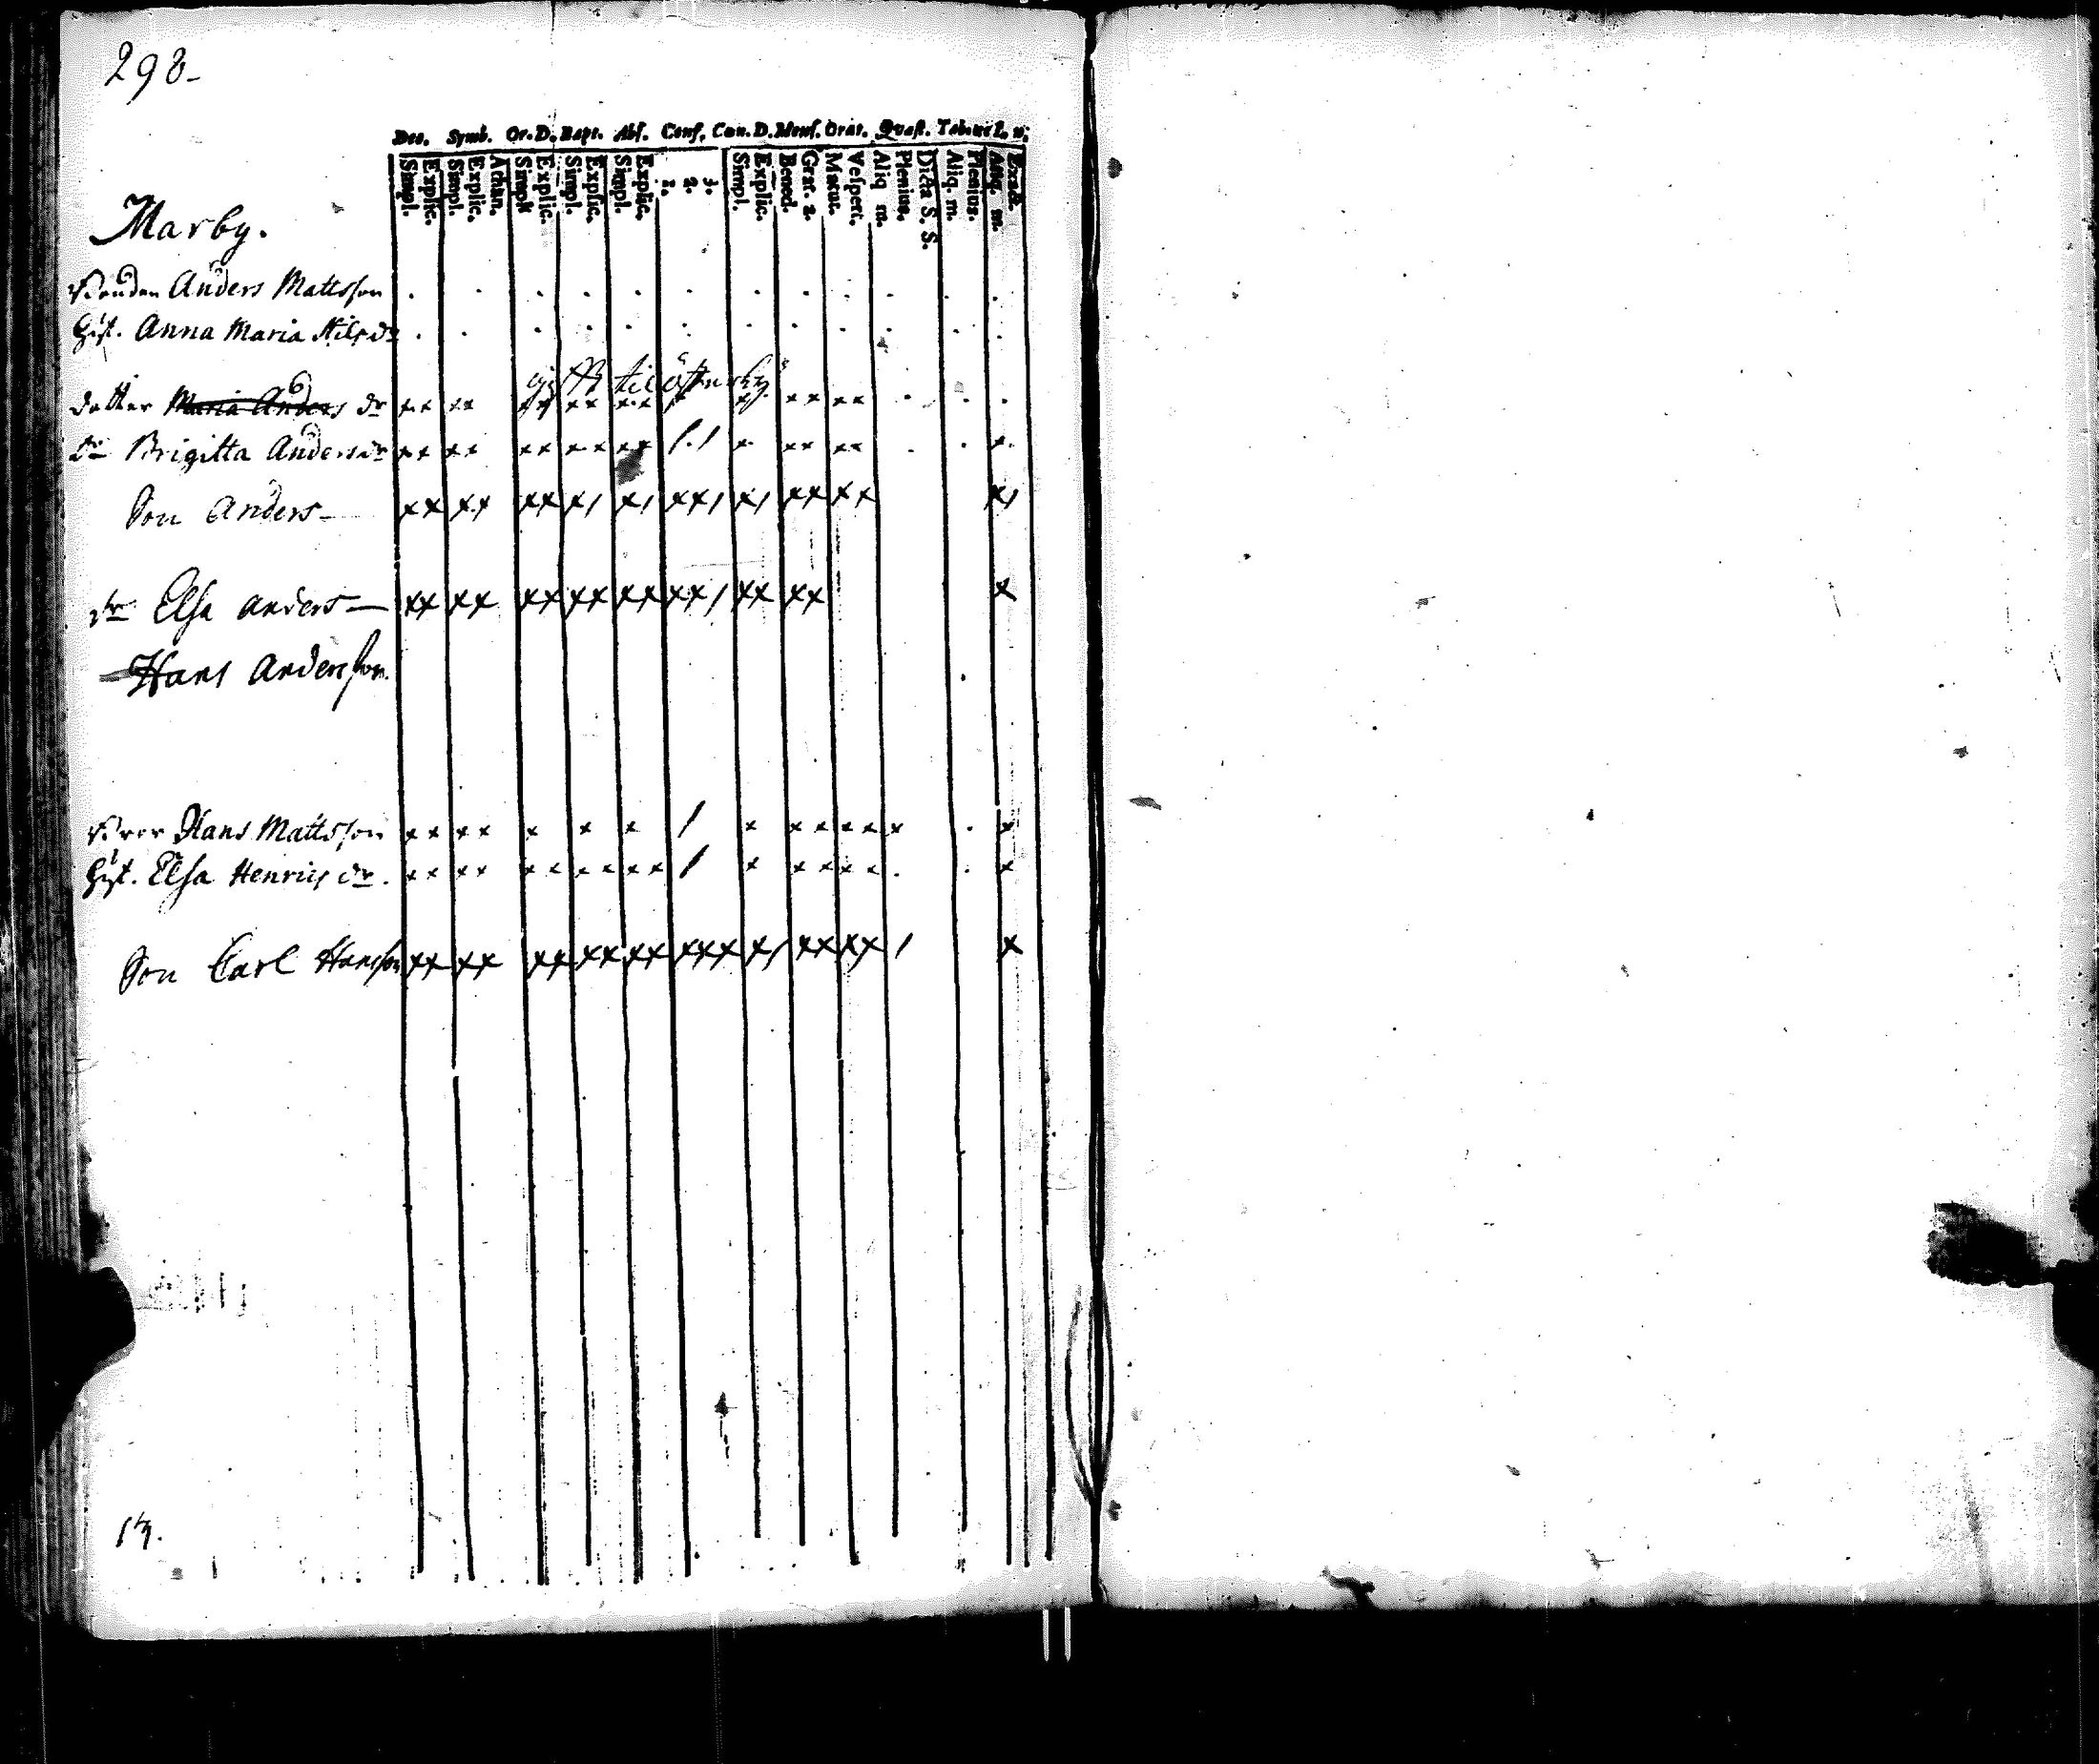 298-
Dec. Symb. Or. D. Bapt. Abs. Conf. Cœn. D. Mens. Orat. Quæst. Tabœ
Simpl. Explic. Simpl. Explic. Athan. Simpl. Explic. Simpl. Explic. Simpl. Explic. 1. 2. 3. Simpl. Explic. Bened. Grat. a. Matut. Vespert. Aliq. m. Plenius. Dicta S. S. Aliq. m. Plenius. Aliq. m. Exact.
Marby.
Anders Mattsson
Hust. Anna Maria Nilsdr
gifft til
dotter Maria Anders dr
Dr Brigitta Andersdr
Son Anders-
dr Elsa anders—
Hans andersson.
Hans Mattsson
Hust. Elsa Henrics dr.
Son Carl Hansson